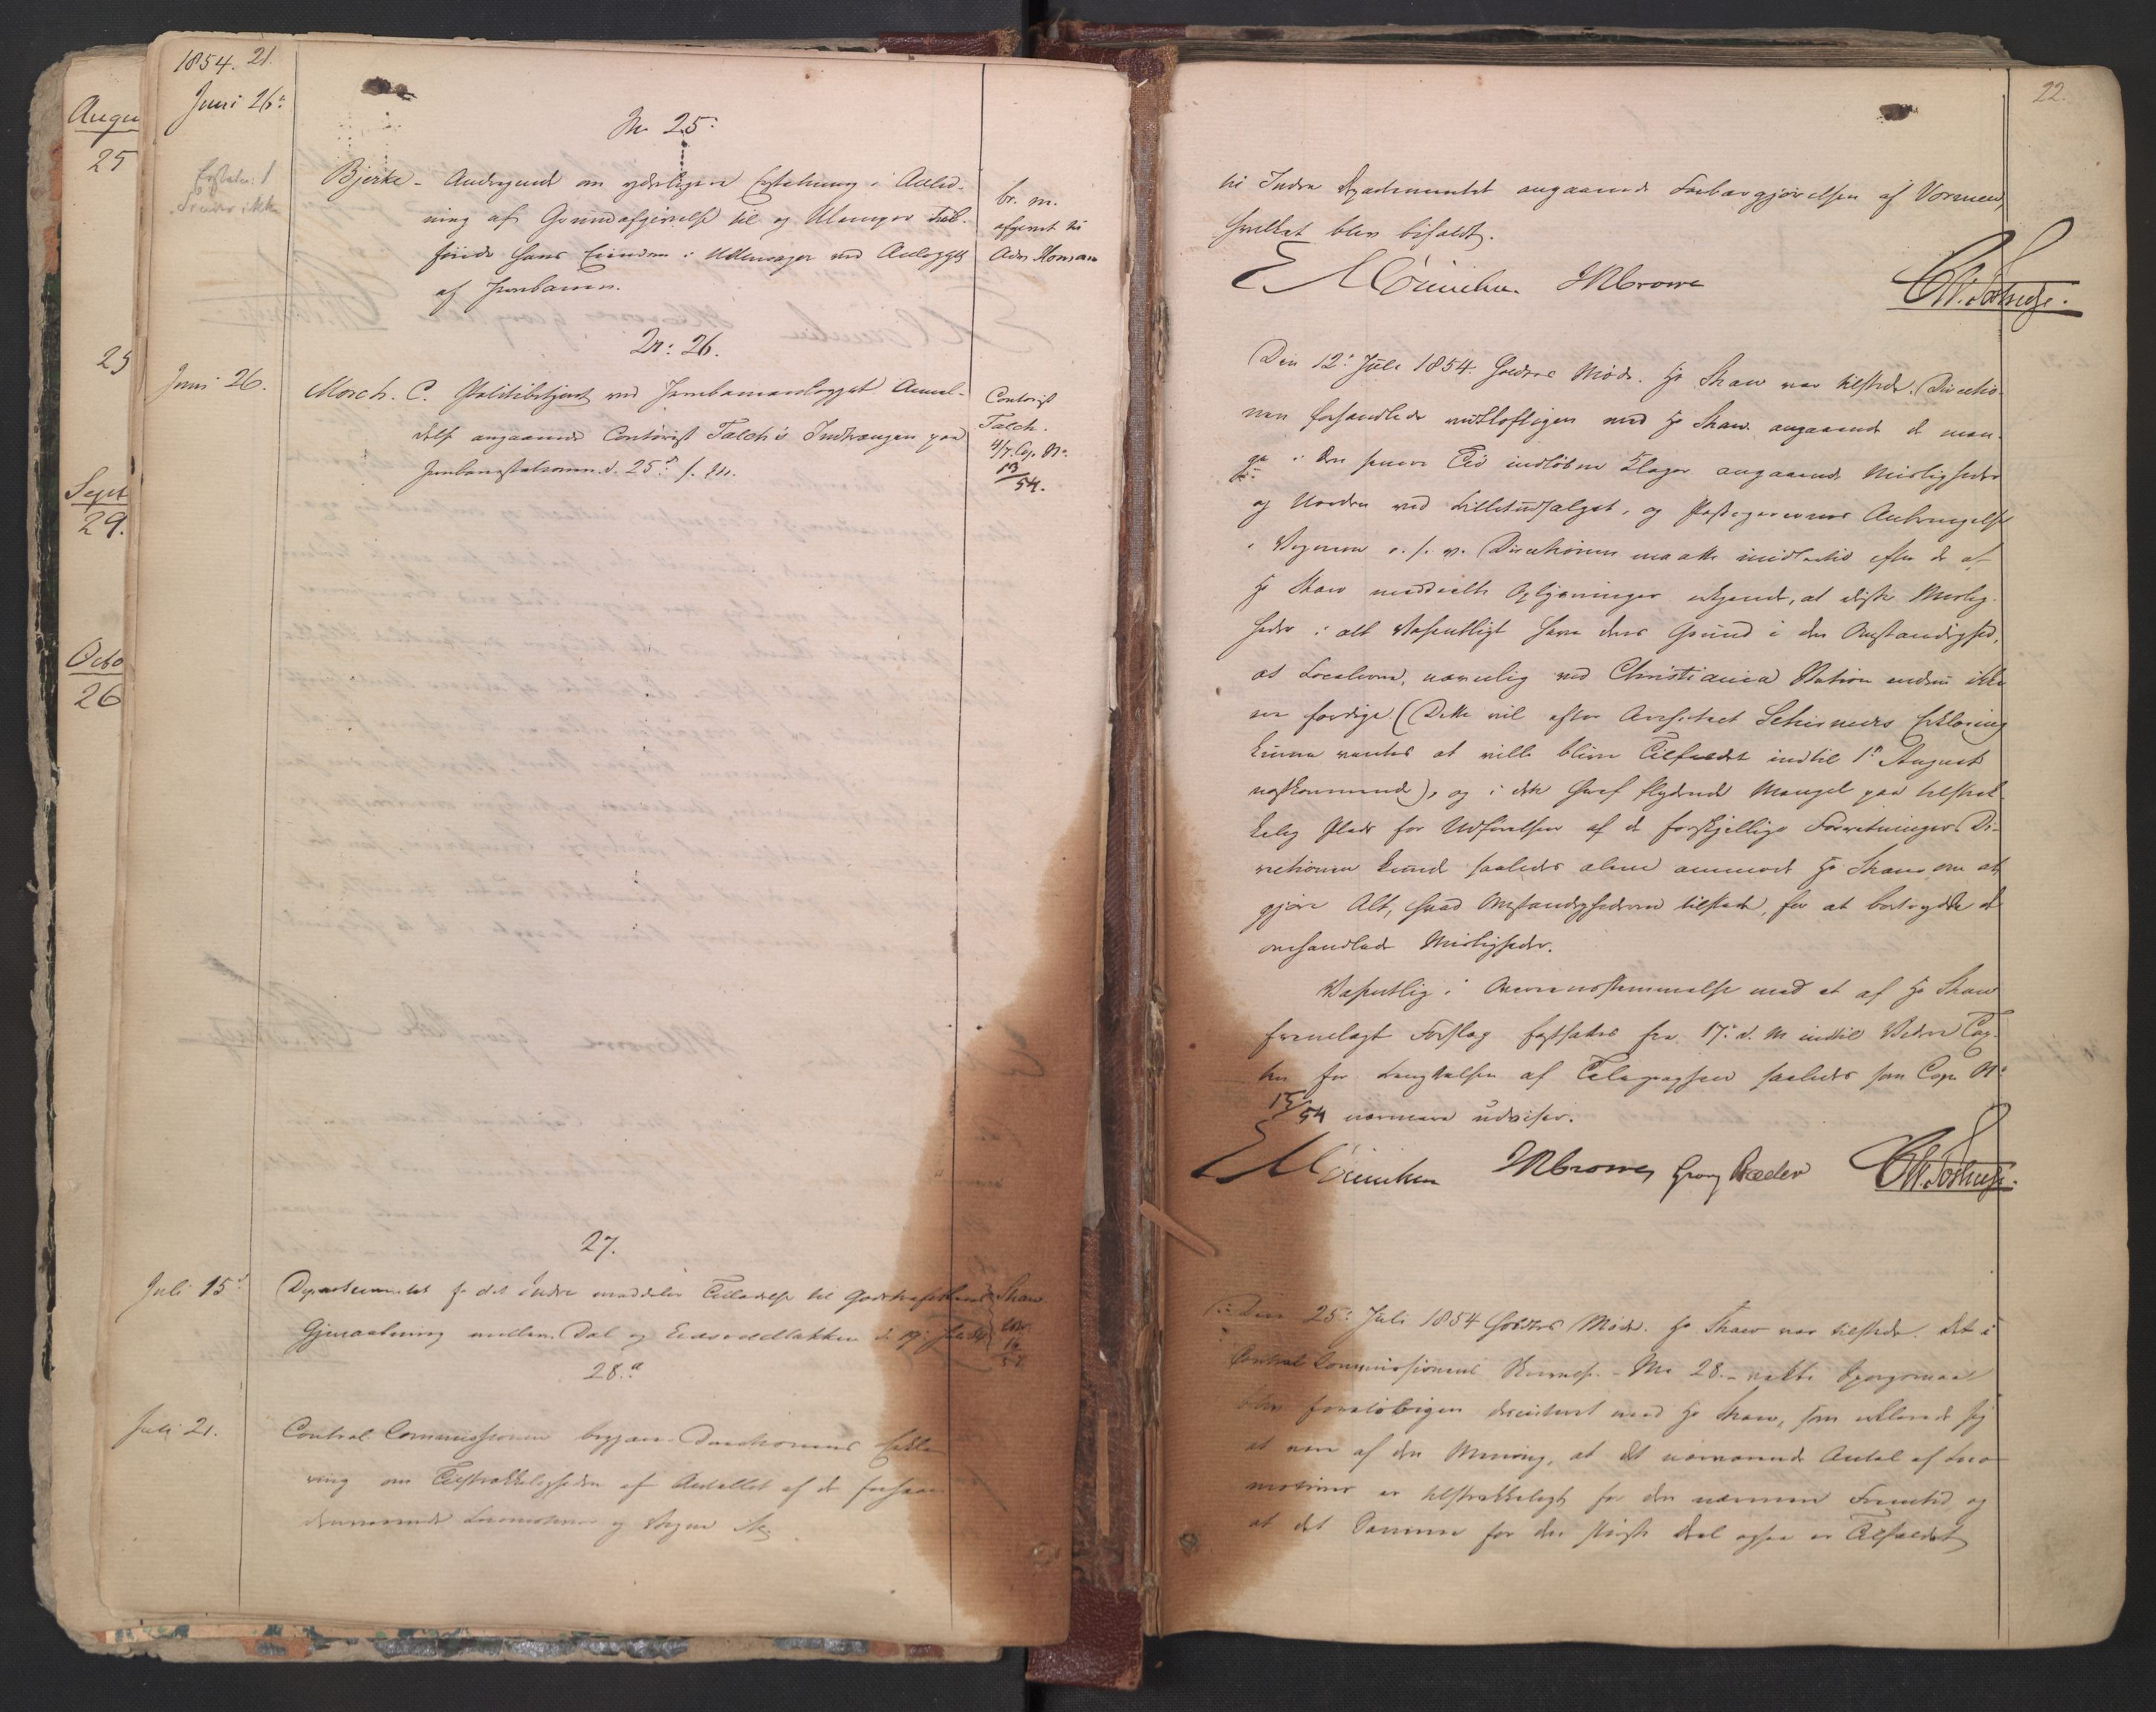 Augu
25
25
Sept
29.
Octo
26
1854. 21.
Juni 26.
No 25.
Bjerke - Andragende om yderligere Erstatning i Anled-
ning af Grundafgivelse til og Ulemper
hans Eiendom i Ullensager ved Anlægget
af Jernbanen.
br. m.
afgivet til
Adv. Homan
No: 26.
Juni 26.
Morch. C. Politibetjent ved Jernbaneanlægget. Anmel-
delse angaaende Contorist Falch's Indtrængen paa
d. 25d. s. M.
Contorist
Falch.
4/7. Cop. No.
13/54.
27.
Juli 15d
Departementet for det Indre meddeler Tilladelse til
mellem Dal og d. 19.
Shaw
28.a
Juli 21.
Central Commissionen Directionens Erklæ-
ring om Tilstrækkeligheden af Antallet af de forhaan-
denværende Locomotiver og Vogne &c.
22.
til Indre Departementet angaaende Farbargjørelsen af Vormen,
hvilket blev bifaldt.
JRCrowe
Den 12te Juli 1854. holdtes Møde. Hr Shaw var tilstede. Directio-
nen forhandlede vidtløftigen med Hr Shaw angaaende de man-
ge i den senere Tid indløbne Klager angaaende Misligheder
og Uorden ved Billetudsalget, og Passagerernes Anbringelse
i Vognene o. s. v. Directionen maatte imidlertid efter de af
Hr Shaw meddeelte Oplysninger erkjende, at disse Mislig-
heder i alt Væsentligt have deres Grund i den Omstændighed,
at Localerne, navnlig ved Christiania Station endnu ikke
ere færdige (Dette vil efter Architect Schirmers Erklæring
kunne ventes at ville blive Tilfældet indtil 1ste August
nestkommende), og i den heraf flydende Mangel paa tilstræk-
kelig Plads for Udførelsen af de forskjellige Forretninger. Di-
rectionen kunde saaledes alene anmode Hr Shaw om at
gjøre Alt, hvad Omstændighederne tillade, for at borttrydde de
omhandlede Misligheder.
Væsentlig i Overensstemmelse med et af Hr Shaw
fremlagt Forslag fastsattes fra 17de d. M. indtil Videre Tax-
ter for Benyttelsen af Telegraphen saaledes som Cop. No
15/54 nærmere udviser.
JRCrowe Georg Ræder
Den 25de Juli 1854 holdtes Møde. Hr Shaw var tilstede. Det i
Central Commissionens - No 28. - vakte Spørgsmaal
blev foreløbigen discuteret med Hr Shaw, som erklærede sig
at være af den Mening, at det nærværende Antal af Loco-
motiver er tilstrækkeligt for den nærmeste Fremtid, og
at det Samme for den største Deel ogsaa er Tilfældet